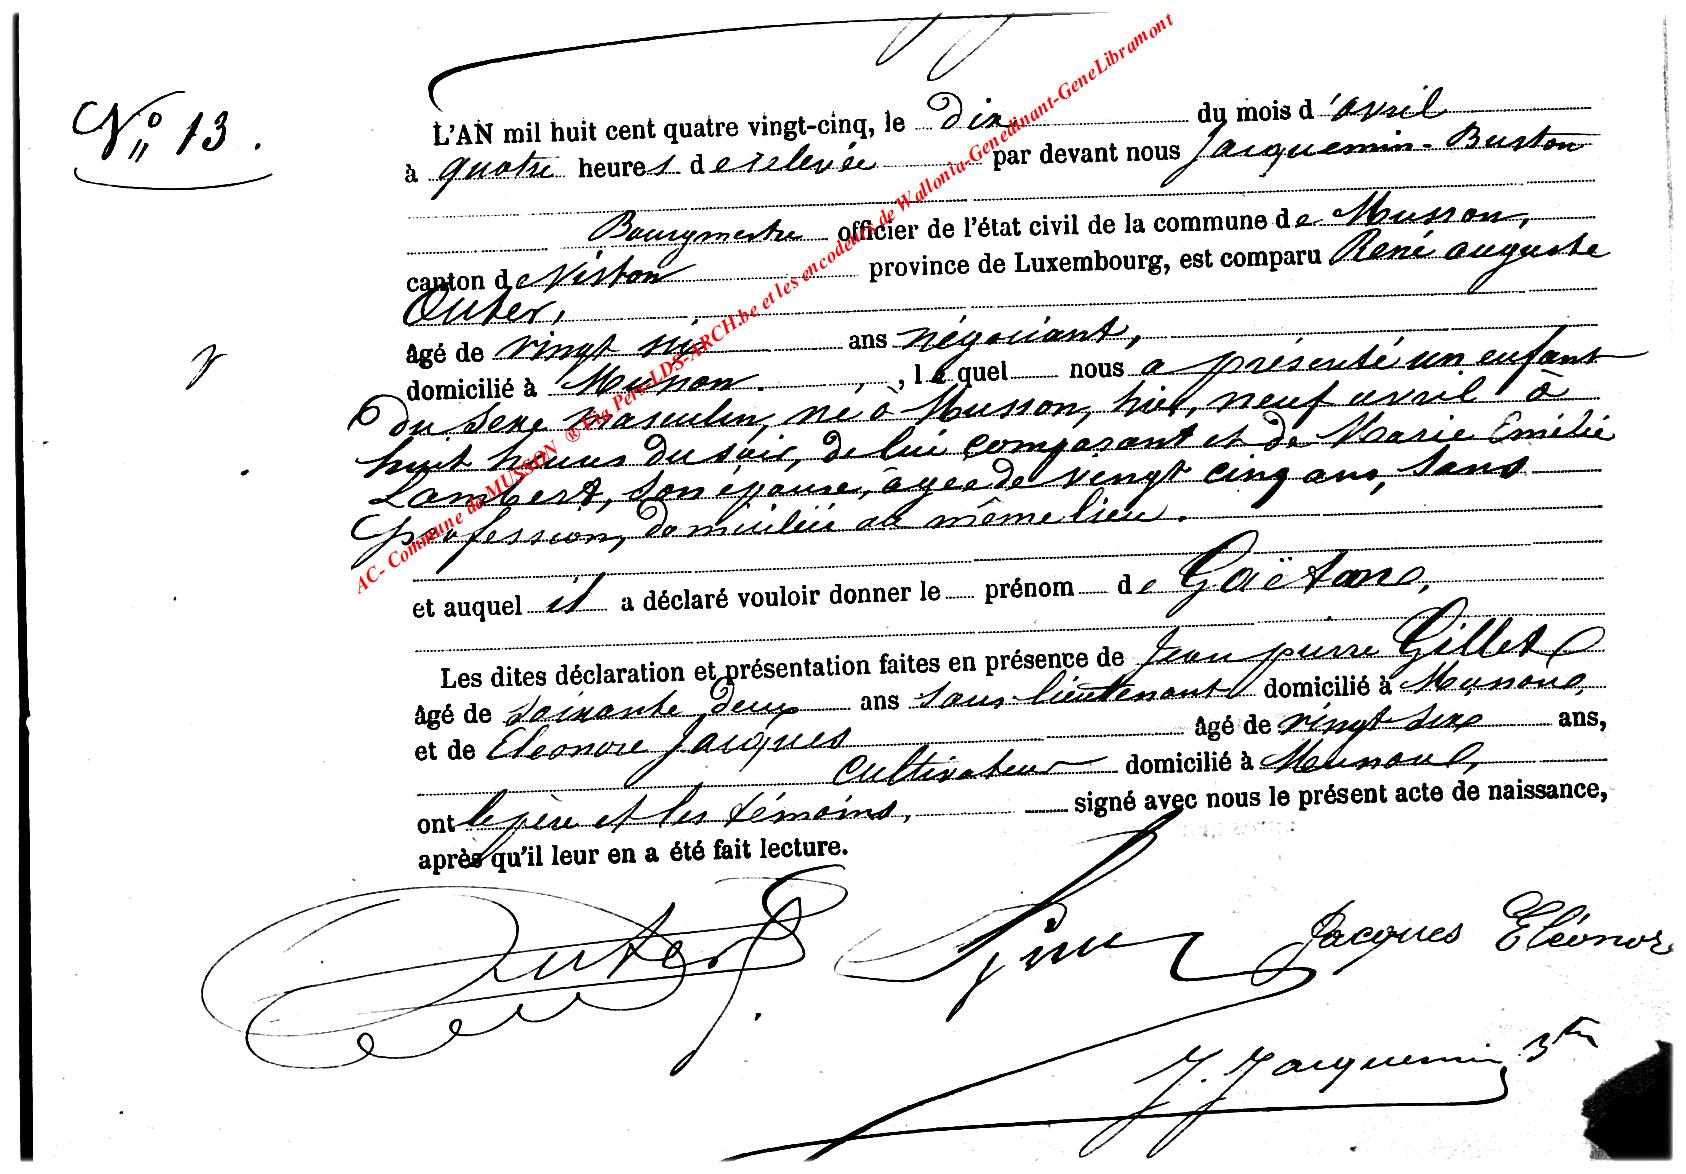 N° 13.
L'AN mil huit cent quatre vingt-cinq, le dix du mois d'avril
à quatre heures de relevée par devant nous Jacquemin-Buston
Bourgmestre officier de l'état civil de la commune de Musson,
canton de Virton province de Luxembourg, est comparu René auguste
Outer,
âgé de vingt six ans négociant,
domicilié à Musson. , le quel nous a présenté un enfant
du sexe masculin, né à Musson, hier, neuf avril à
huit heures du soir, de lui comparant et de Marie Emélie
Lambert, son épouse, âgée de vingt cinq ans, sans
profession, domiciliée au même lieu.
et auquel il a déclaré vouloir donner le prénom de Gaëtan,
Les dites déclaration et présentation faites en présence de Jean pierre Gillet
âgé de soixante deux ans sous-lieutenant domicilié à Musson,
et de Eléonore Jacques âgé de vingt six ans,
cultivateur domicilié à Musson,
ont le père et les témoins, signé avec nous le présent acte de naissance,
après qu'il leur en a été fait lecture.
Outer
Jacques Eléonor
J. Jacquemin Bton
AC- Commune de MUSSON ® Via Pers-LDS-ARCH.be et les encodeurs de Wallonia-Genedinant-GeneLibramont